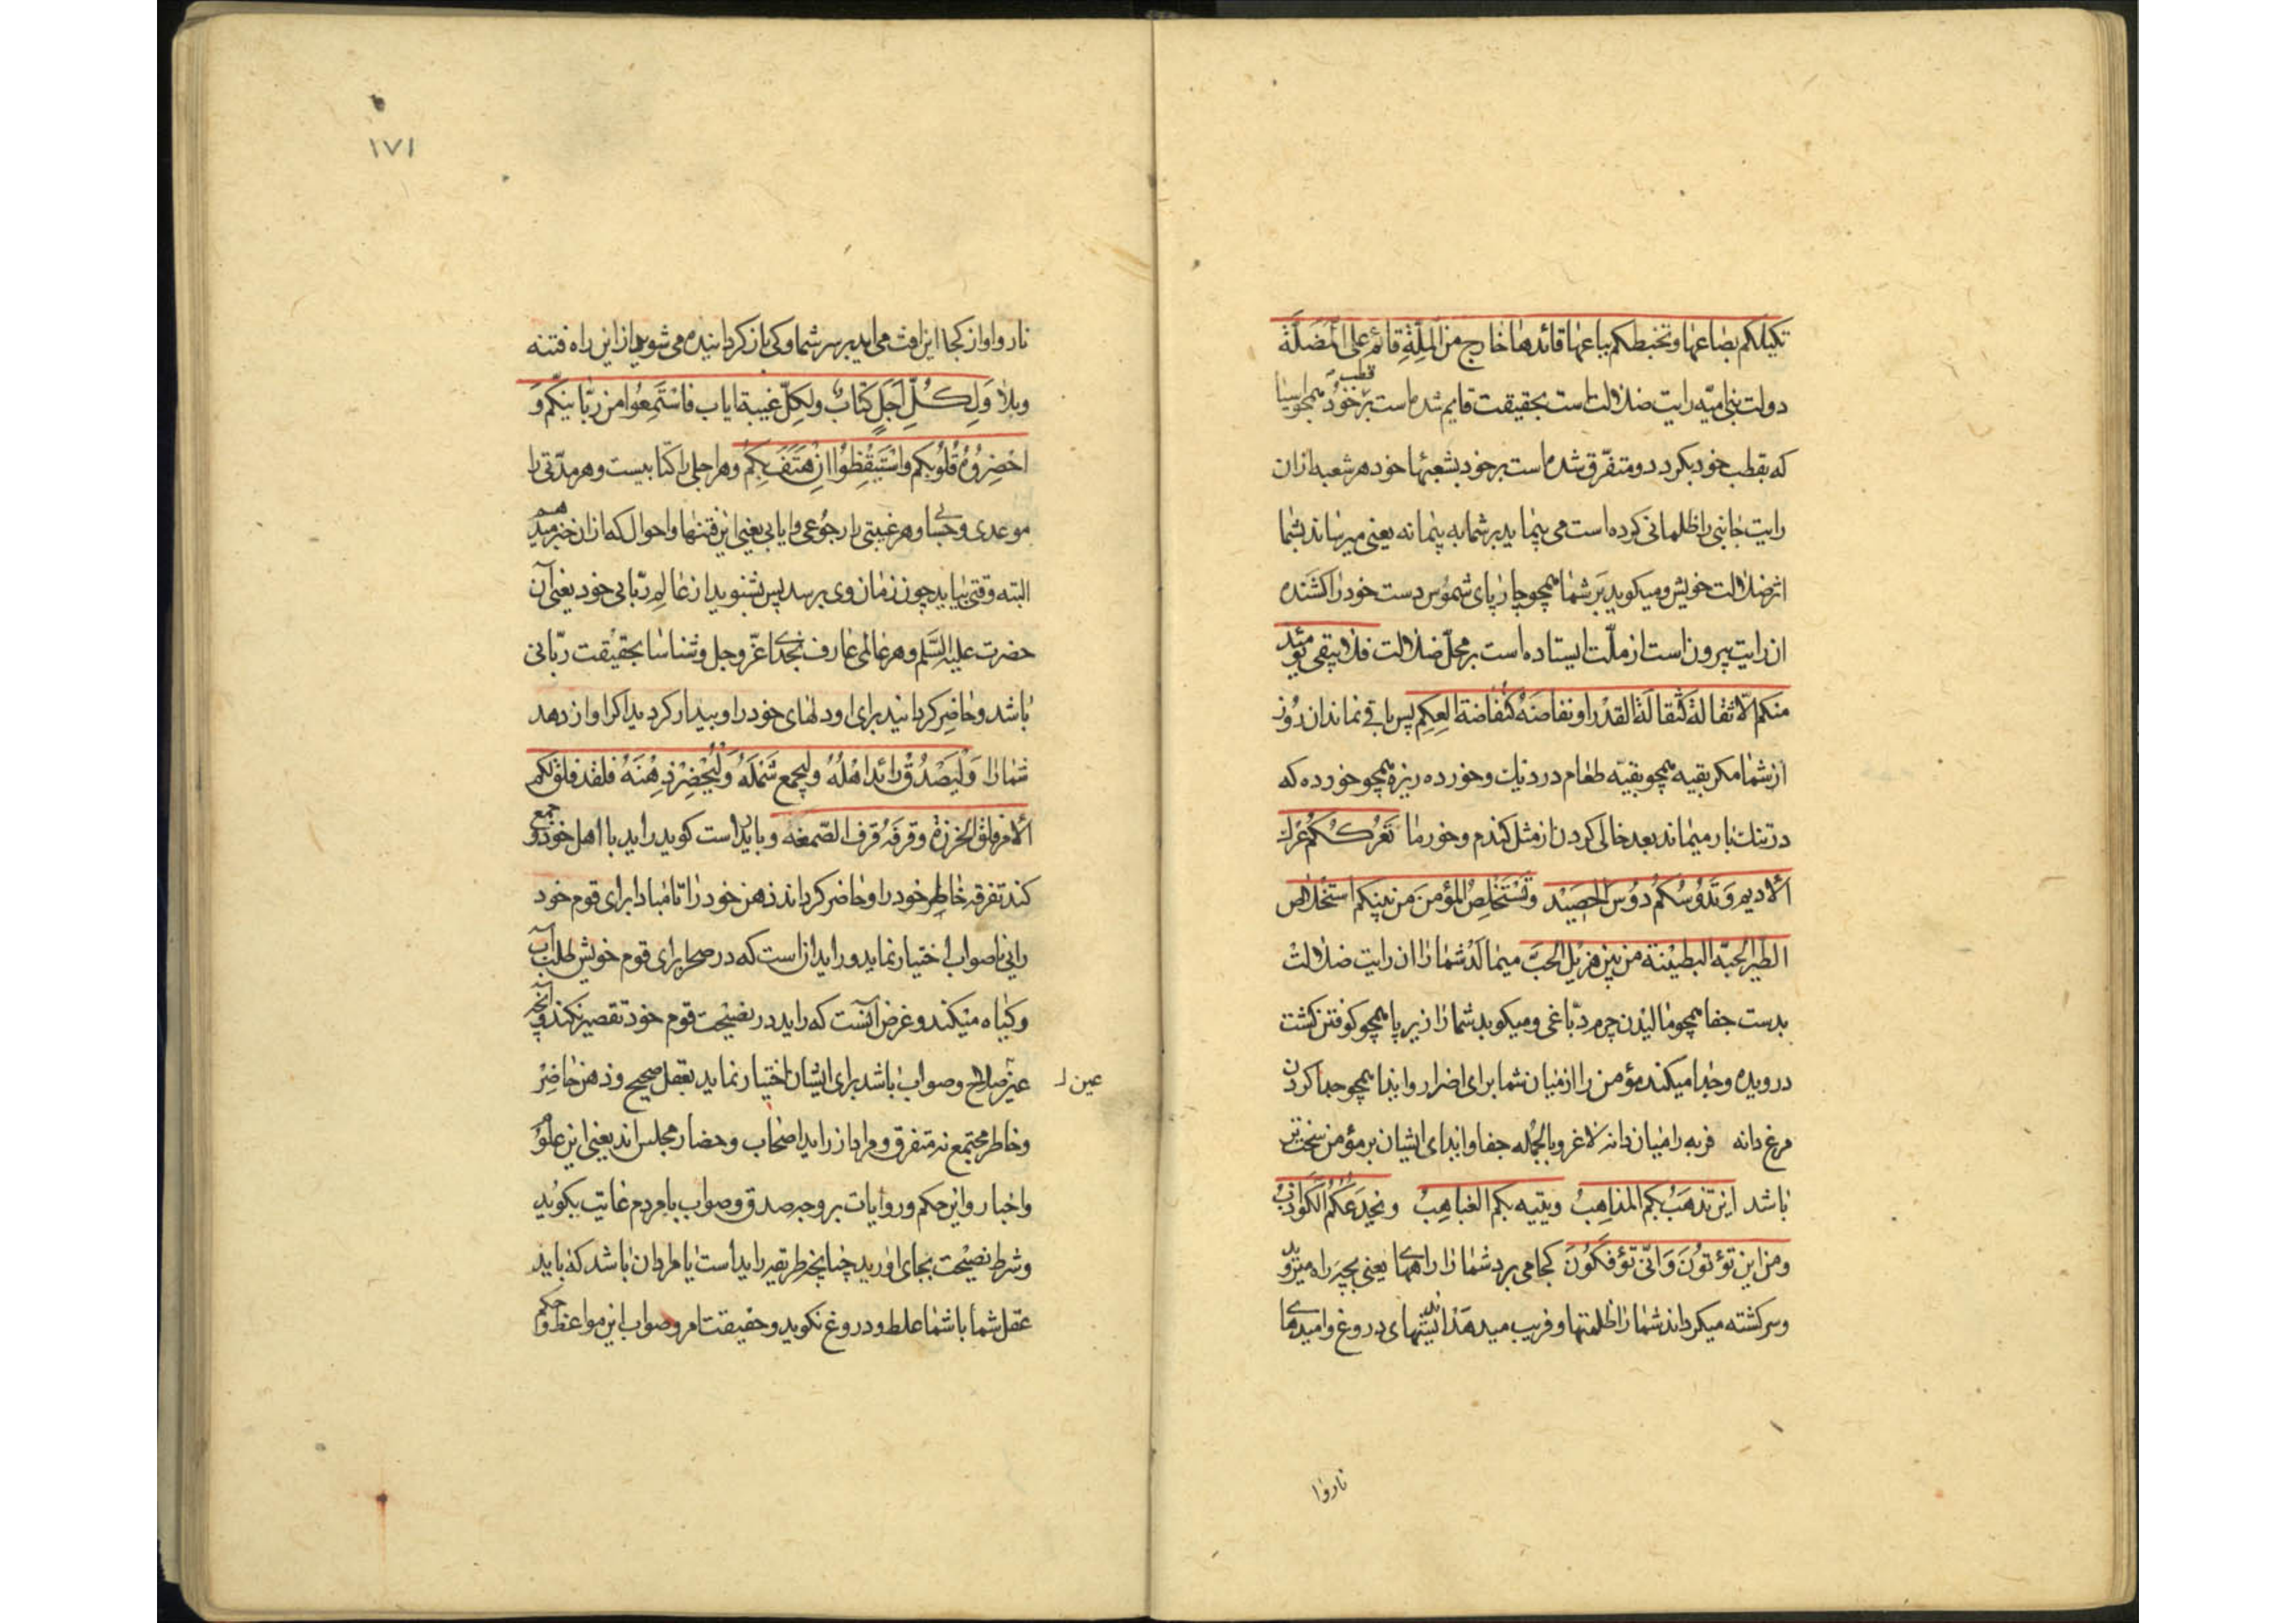 تکیلکم بصاعها و تخبطکم بباعها قائدها خارج من الملة قائم علی المضلة
دولت بنی امیه رایت ضلالت است بحقیقت قایم شده است بر قطب خود همچو اسیا
که بقطب خود بکردد و متفرق شده است بر خود بشعبها خود هر شعبه ازان
رایت جانبی را ظلمانی کرده است می پیماید بر شما به پیمانه یعنی میرساند بشما
اثر ضلالت خویش و میکوبد بر شما همچو چارپای شموس دست خود را کشنده
ان رایت بیرون است از ملت ایستاده است بر محل ضلالت فلا یبقی یومئد
منکم الا ثقالة کثقالة القدر او نفاضة کنفاضة العکم پس باقی نماند ان روز
از شما مکر بقیه همچو بقیه طعام در دیک و خورده ریزه همچو خورده که
در تنک بار میماند بعد خالی کردن از مثل کندم و خورما تعرککم عرک
الادیم و تدوسکم دوس الحصید و تستخلص المؤمن من بینکم استخلاص
الطیر الحبة البطینة من بین هزیل الحب میمالد شما را ان رایت ضلالت
بدست جفا همچو مالیدن چرم دباغی و میکوبد شما را زیر پا همچو کوفتن کشت
درویده و جدا میکند مؤمن را از میان شما برای اضرار و ایذا همچو جدا کردن
مرغ دانه فربه را میان دانه لاغر و بالجمله جفا و ایذای ایشان بر مؤمن سخت تر
باشد این تذهب بکم المذاهب و یتیه بکم الغیاهب و تخدعکم الکواذب
و من این تؤتون و انی تؤفکون کجا می برد شما را راههای یعنی بچه راه میروید
و سرکشته میکرداند شما را ظلمتها و فریب میدهد اندیشهای دروغ و امیدهای
ناروا
۱۷۱
ناروا و از کجا این افت می اید بر سر شما و کی باز کردانیده می شوید از این راه فتنه
و بلا و لکل اجل کتاب و لکل غیبة ایاب فاستمعوا من ربانیکم و
احضروه قلوبکم و استیقظوا ان هتف بکم و هر اجلی را کتابیست و هر مدتی را
موعدی و حسابی و هر غیبتی را رجوعی و ایابی یعنی این فتنها و احوال که ازان خبر میدهم
البته وقتی بیاید چون زمان وی برسد پس بشنوید از عالم ربانی خود یعنی آن
حضرت علیه السلم و هر عالمی عارف بخدای عز و جل و شناسا بحقیقت ربانی
باشد و حاضر کردانید برای او دلهای خود را و بیدار کردید اکر اواز دهد
شما را و لیصدق رائد اهله و لیجمع شمله و لیحضر ذهنه فلقد فلق لکم
الامر فلق الخرزة و قرفه قرف الصمغه و باید راست کوید راید با اهل خود و جمع
کند تفرقه خاطر خود را و حاضر کرداند ذهن خود را تا مبادا برای قوم خود
رایی ناصواب اختیار نماید و راید ان است که در صحرا برای قوم خویش طلب آب
و کیاه میکند و غرض آنست که راید در نصیحت قوم خود تقصیر نکند و آنچه
عین صلاح و صواب باشد برای ایشان اختیار نماید بعقل صحیح و ذهن حاضر
عین ل
و خاطر مجتمع نه متفرق و مراد از راید اصحاب و حضار مجلس اند یعنی این علوم
و اخبار و این حکم و روایات بر وجه صدق و صواب با مردم غایب بکوید
و شرط نصیحت بجای اورید چنانچه طریقه راید است یا مراد ان باشد که باید
عقل شما با شما غلط و دروغ نکوید و حقیقت امر و صواب این مواعظ و حکم